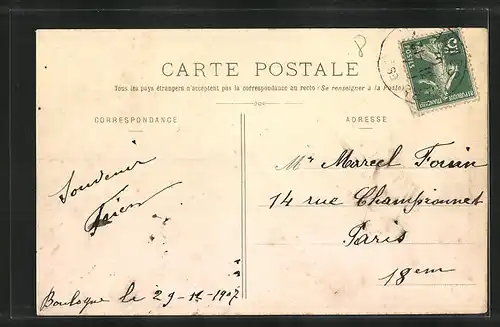 8
CARTE POSTALE
Tous les pays étrangers n'acceptent pas la correspondance au recto (Se renseigner à la Poste)
CORRESPONDANCE
ADRESSE
Souvenir
Boulogne le 29-11-1907
Mr Marcel
14 rue Championnet
Paris
18em
POSTES
REPUBLIQUE FRANÇAISE